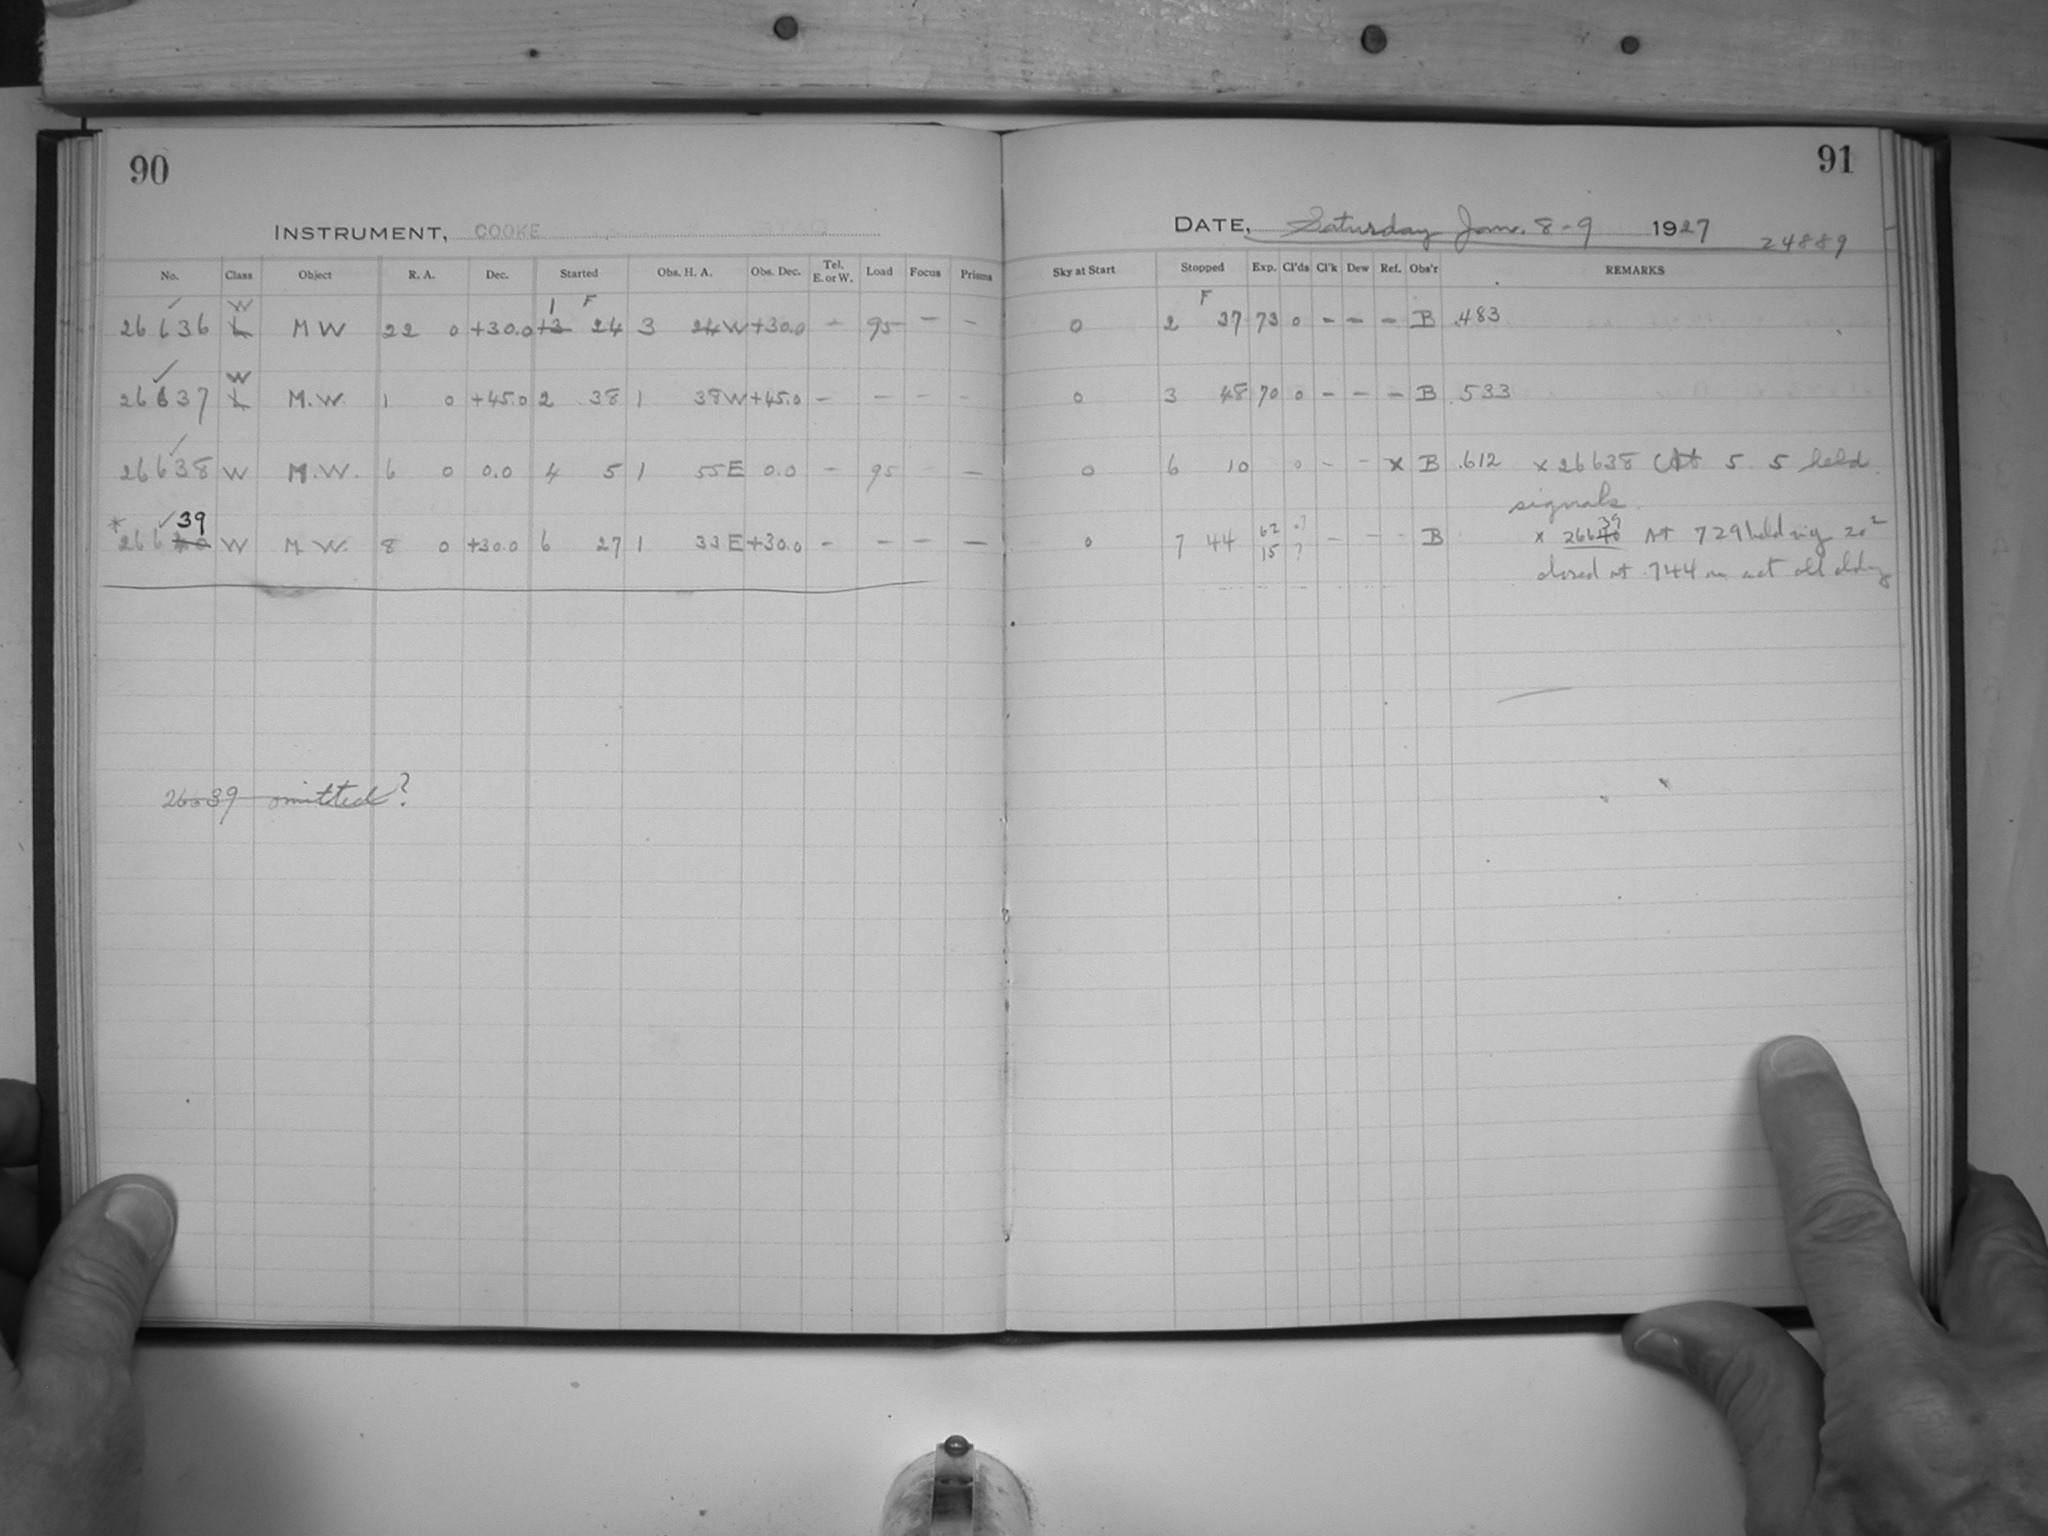 90
INSTRUMENT, COOKE
No. Class Object R. A. Dec. Started Obs. H. A. Obs. Dec. Tel. E. or W. Load Focus Prisms
W 1 F
26636 L MW 22 0 +30.0 +2 24 3 24 W +30.0 - 95 - -
W
26637 L M.W. 1 0 +45.0 2 38 1 38 W +45.0 - - - -
26638 W M.W. 6 0 0.0 4 5 1 55 E 0.0 - 95 -
39
* 26640 W M.W. 8 0 +30.0 6 27 1 33 E +30.0 - - - -
26639 omitted?
91
DATE, Saturday Jan. 8-9 1927 24889
Sky at Start Stopped Exp. Cl'ds Cl'k Dew Ref. Obs'r REMARKS
F
0 2 37 73 0 - - - B .483
0 3 48 70 0 - - - B .533
0 6 10 0 - - x B .612 x 26638 At 5 5 held
signals
0 7 44 62 ? 15 ? - - - B x 26640 39 At 729 held sig
closed at 744